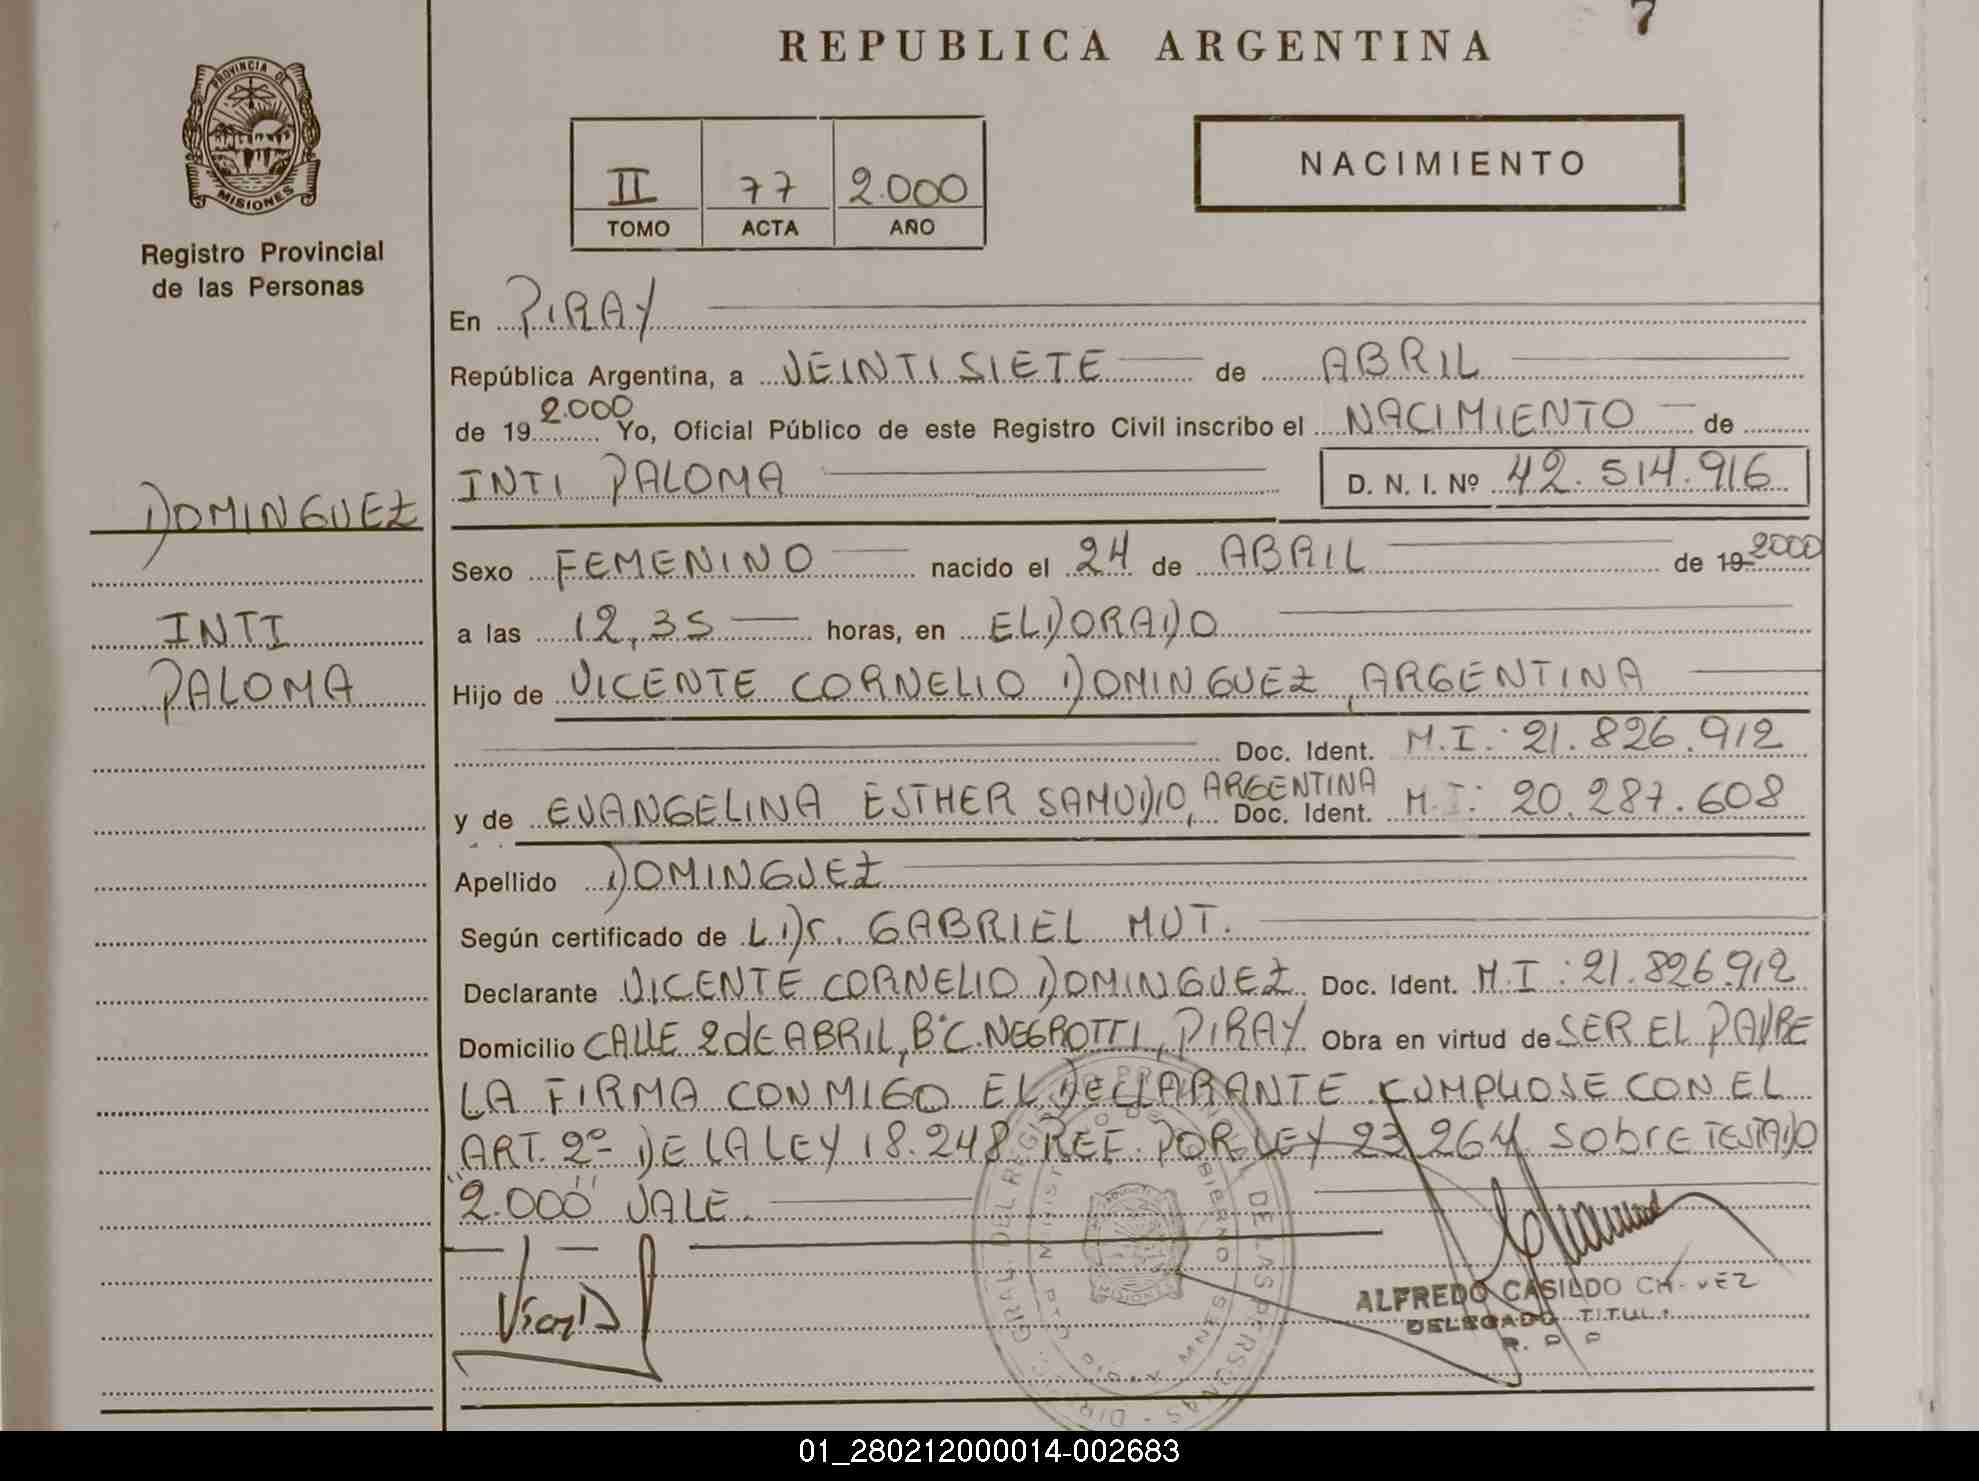 7
REPUBLICA ARGENTINA
PROVINCIA DE
MISIONES
Registro Provincial
de las Personas
II 77 2.000
TOMO ACTA AÑO
NACIMIENTO
En PIRAY
República Argentina, a VEINTISIETE de ABRIL
de 19 2.000 Yo, Oficial Público de este Registro Civil inscribo el NACIMIENTO de
INTI PALOMA D. N. I. Nº 42.514.916
DOMINGUEZ
INTI
PALOMA
Sexo FEMENINO nacido el 24 de ABRIL de 19 2000
a las 12,35 horas, en ELDORADO
Hijo de VICENTE CORNELIO DOMINGUEZ, ARGENTINA
Doc. Ident. M.I.: 21.826.912
y de EVANGELINA ESTHER SAMUDIO, ARGENTINA Doc. Ident. M.I: 20.287.608
Apellido DOMINGUEZ
Según certificado de L.Dr. GABRIEL MUT.
Declarante VICENTE CORNELIO DOMINGUEZ Doc. Ident. M.I: 21.826.912
Domicilio CALLE 2 de ABRIL, Bº C. NEGROTTI, PIRAY Obra en virtud de SER EL PADRE
LA FIRMA CONMIGO EL DECLARANTE CUMPLIOSE CON EL
ART. 2º DE LA LEY 18.248 REF. POR LEY 23.264 SobrE TESTADO
"2.000" VALE.
ALFREDO CASILDO CH VEZ
DELEGADO TITUL
R. P P
01_280212000014-002683